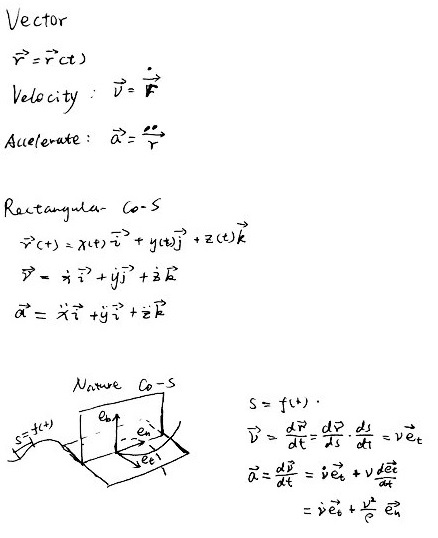 Vector
r⃗ = r⃗(t)
Velocity : v⃗ = ṙ⃗
Accelerate : a⃗ = r̈⃗
Rectangular Co-S
r⃗(t) = x(t) i⃗ + y(t) j⃗ + z(t) k⃗
v⃗ = ẋ i⃗ + ẏ j⃗ + ż k⃗
a⃗ = ẍ i⃗ + ÿ i⃗ + z̈ k⃗
Nature Co-S
s=f(t)
e_b
e_n
e_t
s = f(t) .
v⃗ = dr⃗/dt = dr⃗/ds · ds/dt = v e⃗_t
a⃗ = dv⃗/dt = v̇ e⃗_t + v de⃗_t/dt
= v̇ e⃗_t + v²/ρ e⃗_n